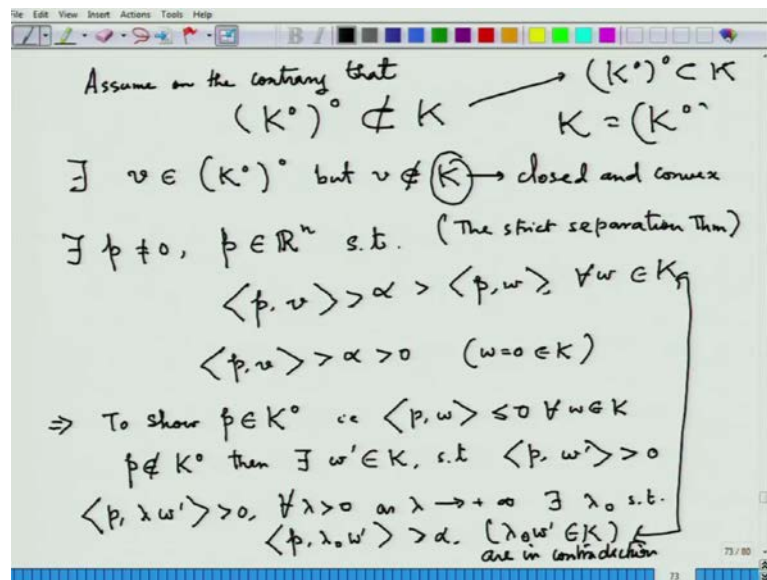 File Edit View Insert Actions Tools Help
Assume on the contrary that
(K°)° ⊄ K → (K°)° ⊂ K
K = (K°
∃ v ∈ (K°)° but v ∉ K → closed and convex
(The strict separation Thm)
∃ p ≠ 0, p ∈ ℝⁿ s.t.
<p, v> > α > <p, w>, ∀ w ∈ K
<p, v> > α > 0 (w=0 ∈ K)
⇒ To show p ∈ K° i.e <p, w> ≤ 0 ∀ w ∈ K
p ∉ K° then ∃ w' ∈ K, s.t <p, w'> > 0
<p, λw'> > 0, ∀ λ > 0 as λ → +∞ ∃ λ₀ s.t.
<p, λ₀w'> > α. (λ₀w' ∈ K)
are in contradiction
73 / 80
73